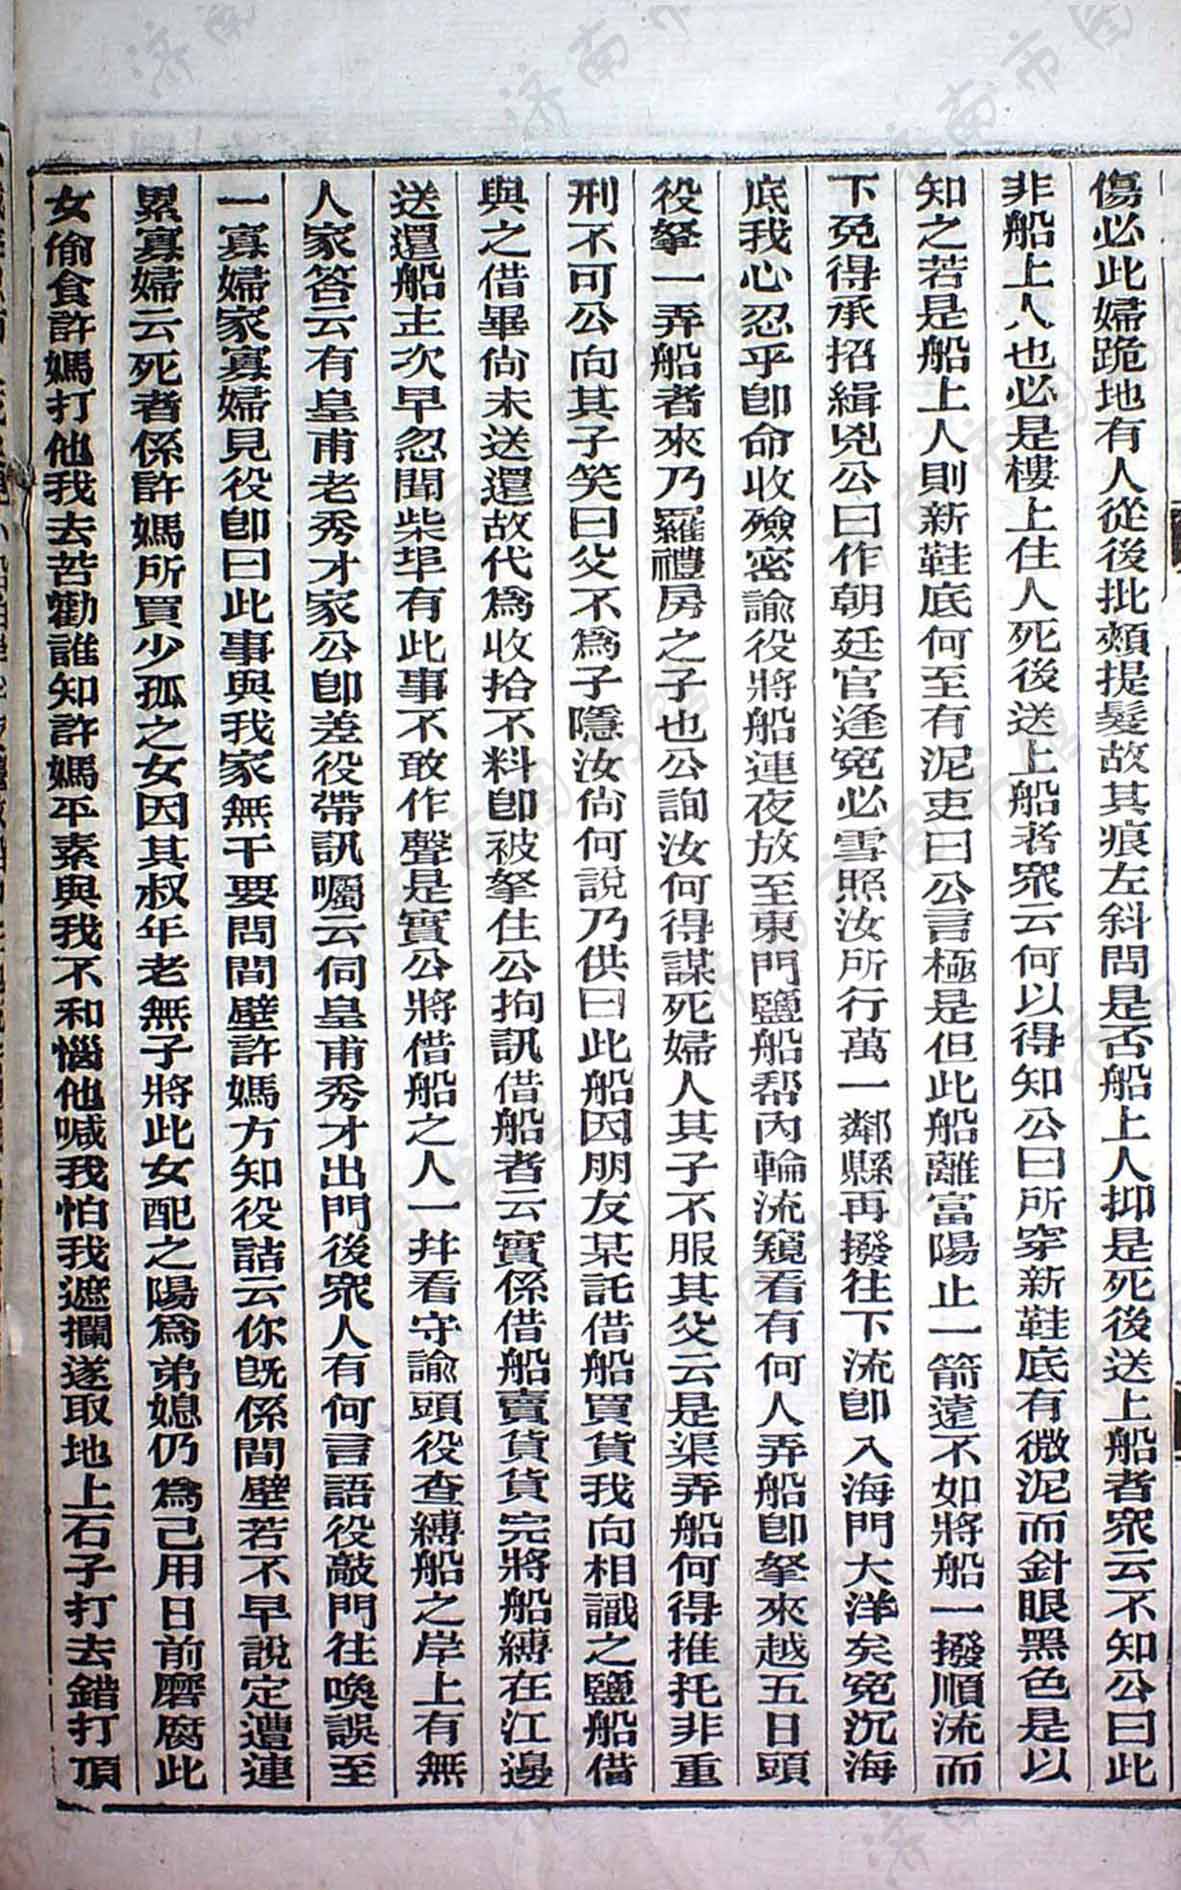 傷必此婦跪地有人從後批頰提髮故其痕左斜問是否船上人抑是死後送上船者眾云不知公曰此
非船上人也必是樓上住人死後送上船者眾云何以得知公曰所穿新鞋底有微泥而針眼黑色是以
知之若是船上人則新鞋底何至有泥吏曰公言極是但此船離富陽止一箭遠不如將船一撥順流而
下免得承招緝兇公曰作朝廷官逢冤必雪照汝所行萬一鄰縣再撥往下流卽入海門大洋矣冤沉海
底我心忍乎卽命收殮密諭役將船連夜放至東門鹽船帮內輪流窺看有何人弄船卽拏來越五日頭
役拏一弄船者來乃羅禮房之子也公詢汝何得謀死婦人其子不服其父云是渠弄船何得推托非重
刑不可公向其子笑曰父不為子隱汝尙何說乃供曰此船因朋友某託借船買貨我向相識之鹽船借
與之借畢尙未送還故代為收拾不料卽被拏住公拘訊借船者云實係借船賣貨貨完將船縛在江邊
送還船主次早忽聞柴埠有此事不敢作聲是實公將借船之人一并看守諭頭役查縛船之岸上有無
人家答云有皇甫老秀才家公卽差役帶訊囑云伺皇甫秀才出門後眾人有何言語役敲門往喚誤至
一寡婦家寡婦見役卽曰此事與我家無干要問間壁許媽方知役詰云你旣係間壁若不早說定遭連
累寡婦云死者係許媽所買少孤之女因其叔年老無子將此女配之陽為弟媳仍為己用日前磨腐此
女偷食許媽打他我去苦勸誰知許媽平素與我不和惱他喊我怕我遮攔遂取地上石子打去錯打頂